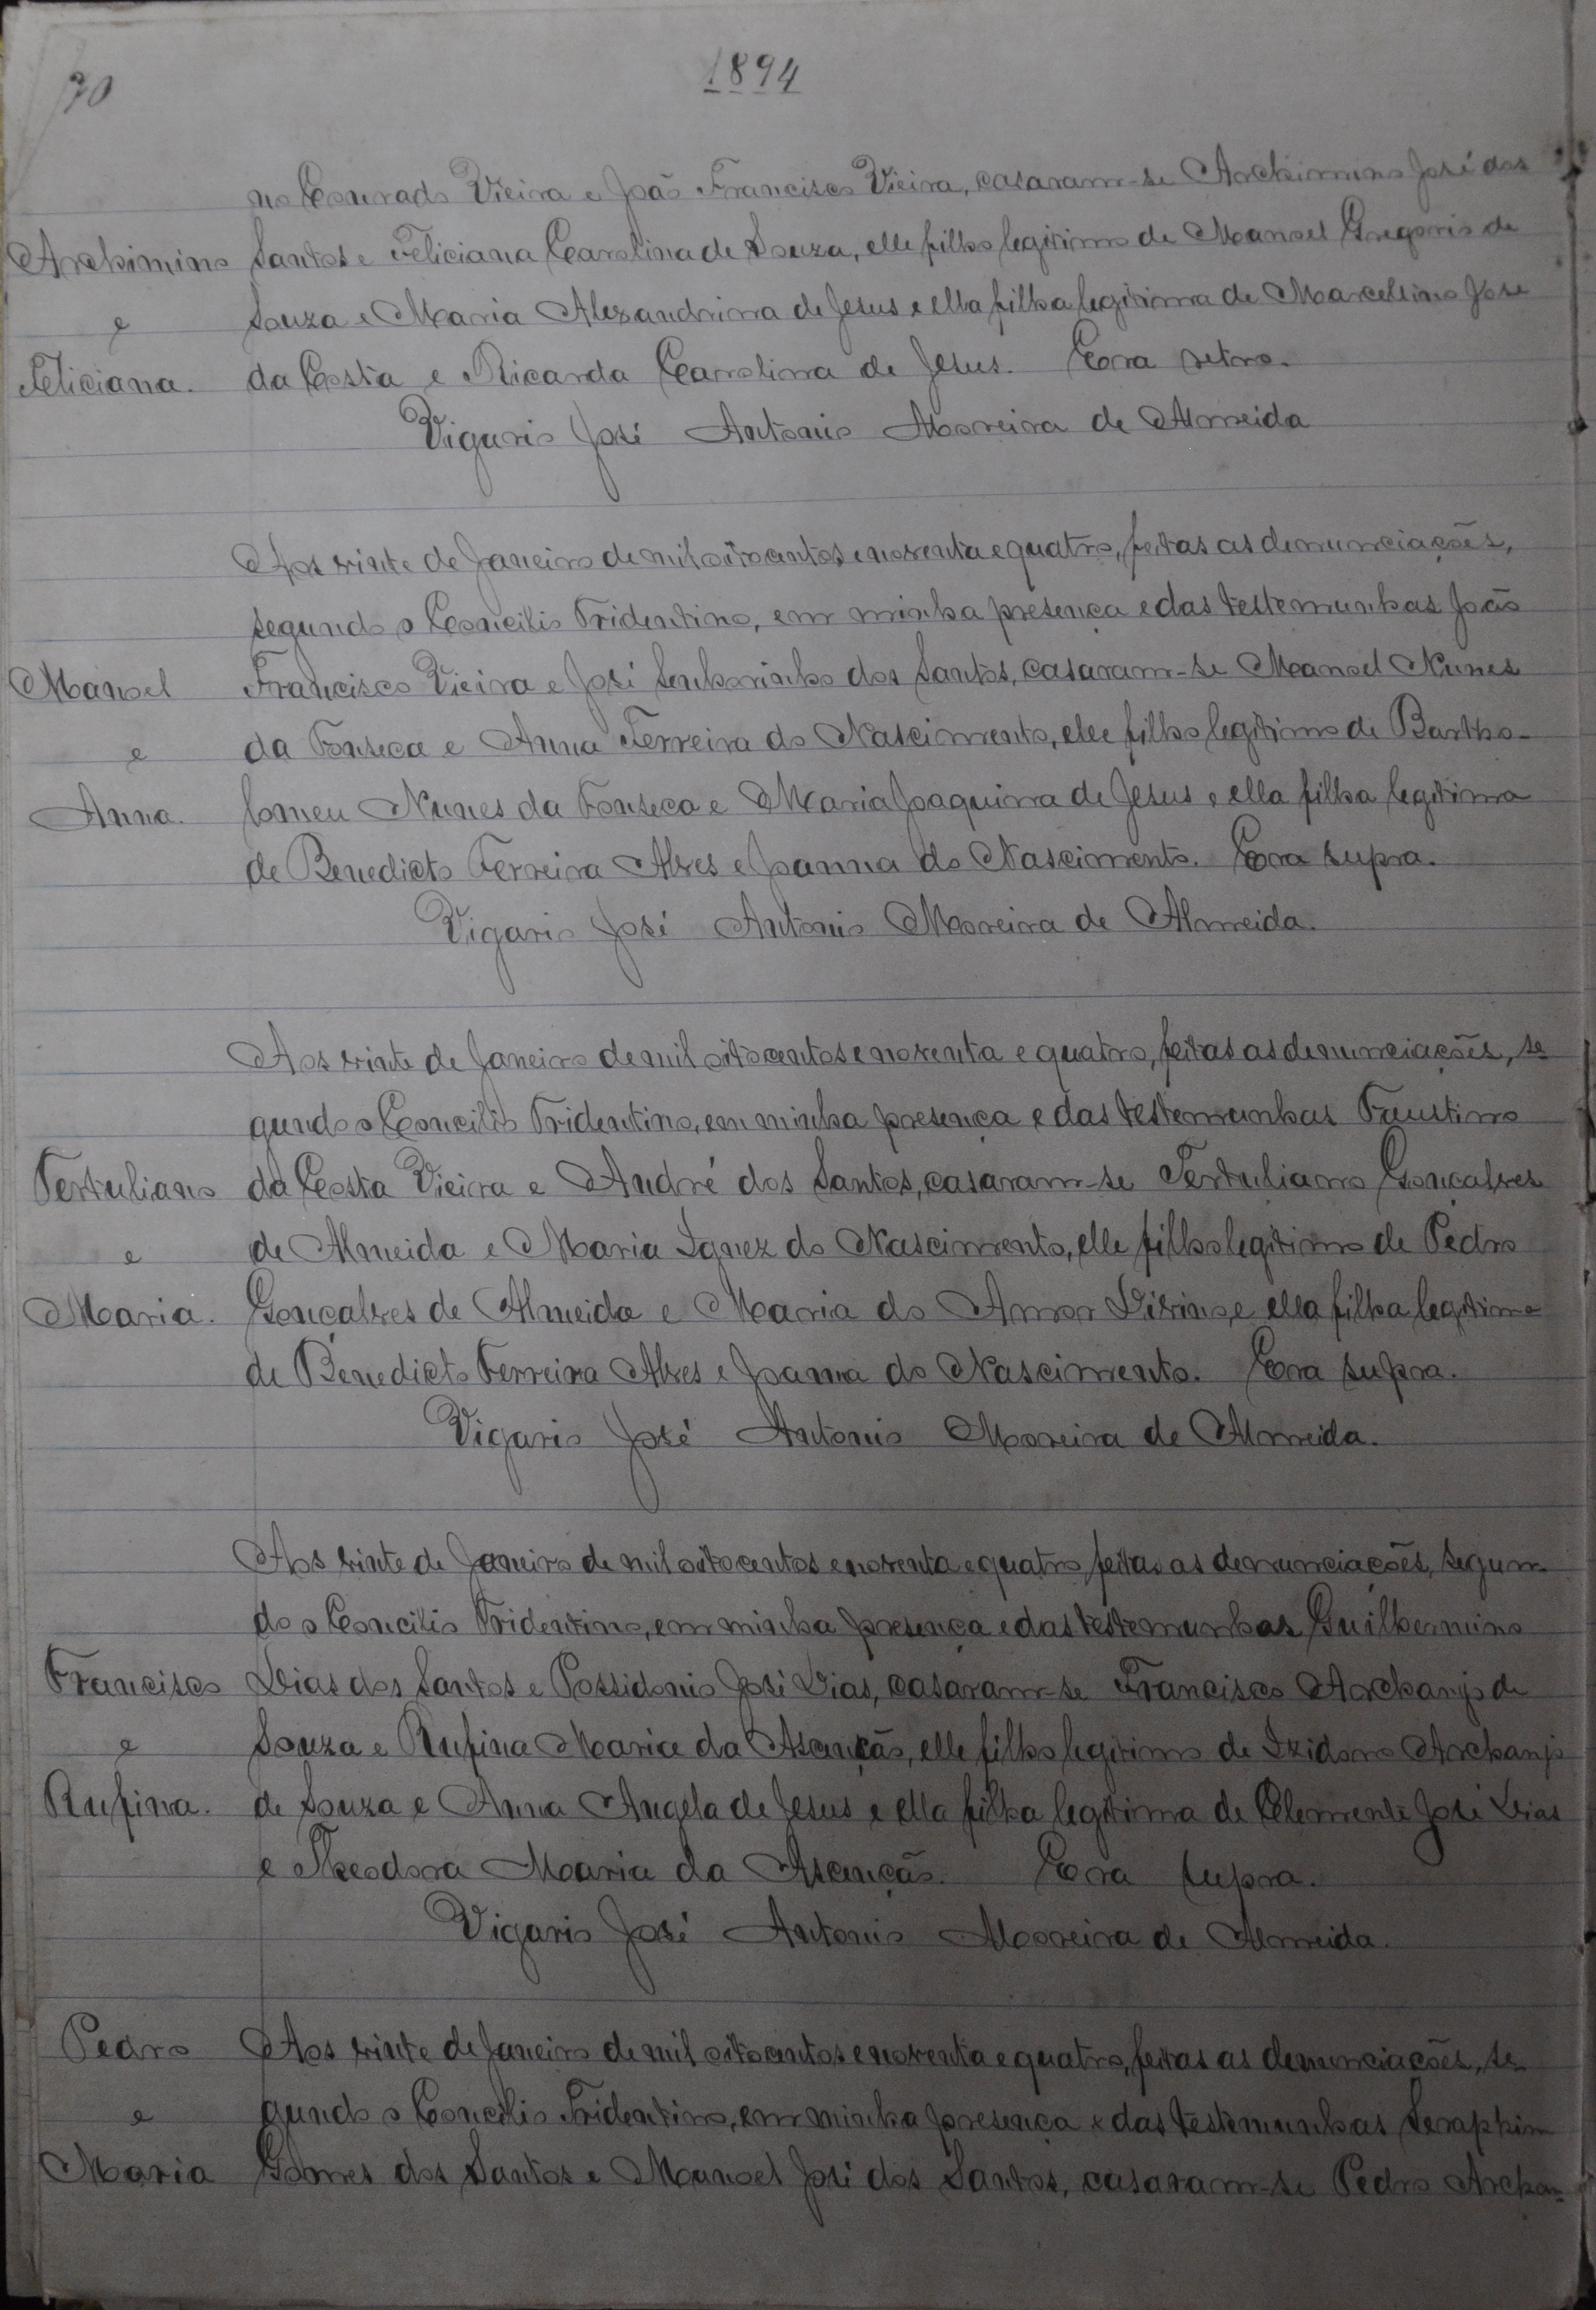 70
1894
no Conrado Vieira e João Francisco Vieira, casaram-se Archimino José dos
Archimino Santos e Feliciana Carolina de Souza, elle filho legitimo de Manoel Gregorio de
e Souza e Maria Alexandrina de Jesus e ella filha legitima de Marcellino José
Feliciana. da Costa e Ricarda Carolina de Jesus. Era retro.
Vigario José Antonio Moreira de Almeida
Aos vinte de Janeiro de mil oitocentos e noventa e quatro, feitas as denunciações,
segundo o Concilio Tridentino, em minha presença e das testemunhas João
Manoel Francisco Vieira e José Senhorinho dos Santos, casaram-se Manoel Nunes
e da Fonseca e Anna Ferreira do Nascimento, elle filho legitimo de Bartho-
Anna. lomeu Nunes da Fonseca e Maria Joaquina de Jesus e ella filha legitima
de Benedicto Ferreira Alves e Joanna do Nascimento. Era supra.
Vigario José Antonio Moreira de Almeida.
Aos vinte de Janeiro de mil oitocentos e noventa e quatro, feitas as denunciações, se
gundo o Concilio Tridentino, em minha presença e das testemunhas Faustino
Tertuliano da Costa Vieira e André dos Santos, casaram-se Tertuliano Gonçalves
e de Almeida e Maria Ignez do Nascimento, elle filho legitimo de Pedro
Maria. Gonçalves de Almeida e Maria do Amor Divino, e ella filha legitima
de Benedicto Ferreira Alves e Joanna do Nascimento. Era supra.
Vigario José Antonio Moreira de Almeida.
Aos vinte de Janeiro de mil oitocentos e noventa e quatro feitas as denunciações, segun-
do o Concilio Tridentino, em minha presença e das testemunhas Guilhermino
Francisco Dias dos Santos e Possidonio José Dias, casaram-se Francisco Archanjo de
e Souza e Rufina Maria da Asenção, elle filho legitimo de Izidoro Archanjo
Rufina. de Souza e Anna Angela de Jesus e ella filha legitima de Clemente José Dias
e Theodora Maria da Asenção. Era supra.
Vigario José Antonio Moreira de Almeida.
Pedro Aos vinte de Janeiro de mil oitocentos e noventa e quatro, feitas as denunciações, se-
e gundo o Concilio Tridentino, em minha presença e das testemunhas Seraphim
Maria Gomes dos Santos e Manoel José dos Santos, casaram-se Pedro Archan-